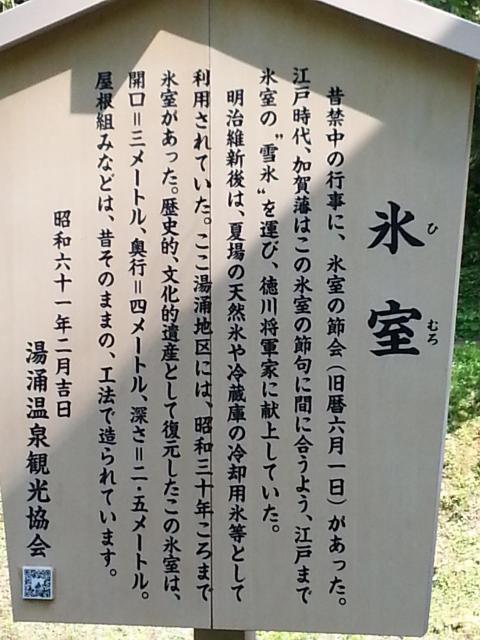 氷室
ひ むろ
昔禁中の行事に、氷室の節会（旧暦六月一日）があった。
江戸時代、加賀藩はこの氷室の節句に間に合うよう、江戸まで
氷室の〝雪氷〟を運び、徳川将軍家に献上していた。
明治維新後は、夏場の天然氷や冷蔵庫の冷却用氷等として
利用されていた。ここ湯涌地区には、昭和三十年ころまで
氷室があった。歴史的、文化的遺産として復元したこの氷室は、
開口＝三メートル、奥行＝四メートル、深さ＝二・五メートル。
屋根組みなどは、昔そのままの、工法で造られています。
昭和六十一年二月吉日
湯涌温泉観光協会